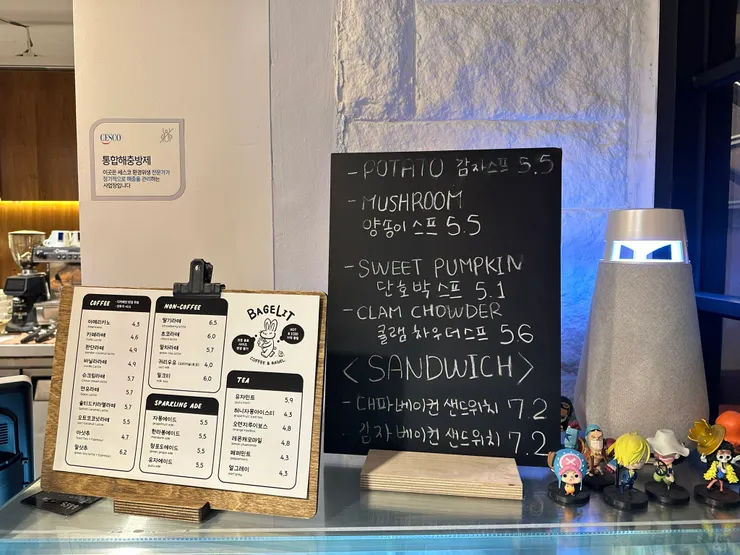 CESCO
통합해충방제
이곳은 세스코 환경위생 전문가가
정기적으로 해충을 관리하는
사업장입니다
COFFEE
아메리카노 4.3
카페라떼 4.6
헌틴라떼 4.9
바닐라라떼 4.9
슈크림라떼 5.7
연유라떼 5.7
솔티드카라멜라떼 5.7
오트코코넛라떼 5.5
아샷추 4.7
말샷추 6.2
NON-COFFEE
딸기라떼 6.5
초코라떼 6.0
말차라떼 5.7
허리우유 4.0
밀크티 6.0
SPARKLING ADE
자몽에이드 5.5
한라봉에이드 5.5
청포도에이드 5.5
유자에이드 5.5
BAGELIT
COFFEE & BAGEL
TEA
유자민트 5.9
허니자몽아이스티 4.3
오렌지루이보스 4.8
레몬캐모마일 4.8
페퍼민트 4.3
얼그레이 4.3
- POTATO 감자스프 5.5
- MUSHROOM
양송이스프 5.5
- SWEET PUMPKIN
단호박스프 5.1
- CLAM CHOWDER
클램 차우더스프 5.6
< SANDWICH >
- 대파베이컨 샌드위치 7.2
감자 베이컨 샌드위치 7.2